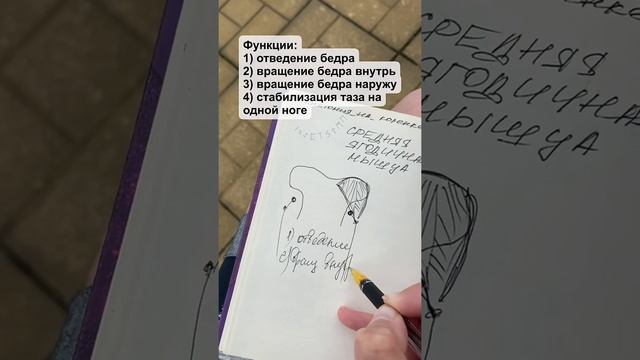 Функции:
1) отведение бедра
2) вращение бедра внутрь
3) вращение бедра наружу
4) стабилизация таза на
одной ноге
СРЕДНЯЯ
ЯГОДИЧНА
МЫШЦА
1) отведение
2) вращ внут
СРЕДНЯЯ
ЯГОДИЧНА
МЫШЦА